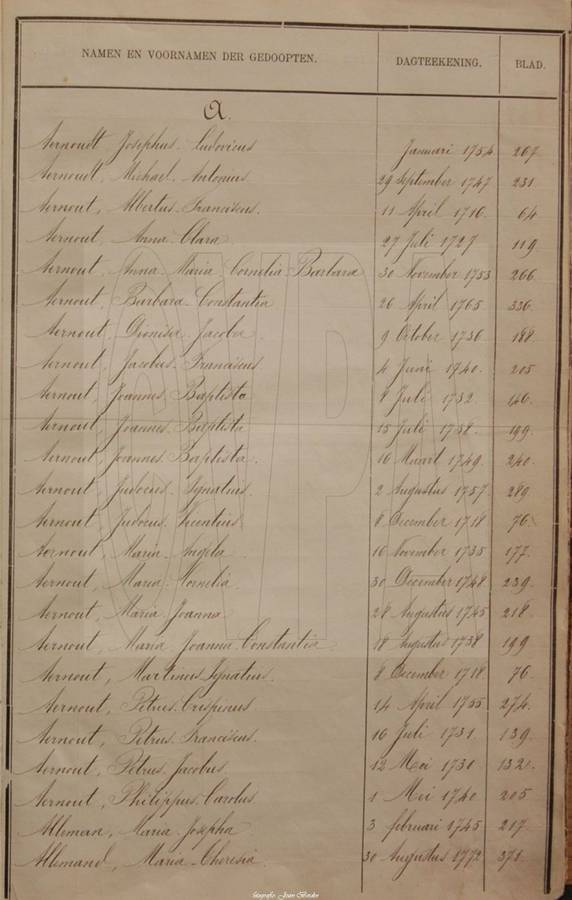 NAMEN EN VOORNAMEN DER GEDOOPTEN. DAGTEEKENING. BLAD.
a.
Aernoudt Josephus Ludovicus Januari 1754 267
Aernoudt, Michael Antonius 29 September 1747 231
Aernout, Albertus Franciscus. 11 April 1716 64
Aernout, Anna Clara 27 Juli 1727 119
Aernout, Anna Maria Cornelia Barbara 30 November 1753 266
Aernout, Barbara Constantia 26 April 1765 336
Aernout, Dionisia Jacoba 9 October 1736 188
Aernout, Jacobus Franciscus 4 Juni 1740 205
Aernout, Joannes Baptista 8 Juli 1732 146
Aernout, Joannes Baptista 15 Juli 1738 199
Aernout, Joannes Baptista. 16 Maart 1749 240
Aernout, Judocus Ignatius 2 Augustus 1757 289
Aernout, Judocus 8 December 1718 76
Aernout, Maria Angela 16 November 1735 177
Aernout, Maria Kornelia 30 December 1748 239
Aernout, Maria Joanna 28 Augustus 1745 218
Aernout, Maria Joanna Constantia 18 Augustus 1738 199
Aernout, Martinus Ignatius. 8 December 1718 76
Aernout, Petrus Crispinus 14 April 1755 274
Aernout, Petrus Franciscus. 16 Juli 1731 139
Aernout, Petrus Jacobus 12 Mei 1730 132
Aernout, Philippus Carolus 1 Mei 1740 205
Alleman, Maria Josepha 3 februari 1745 217
Allemand, Maria Theresia 30 Augustus 1772 378
fotografie: Joan